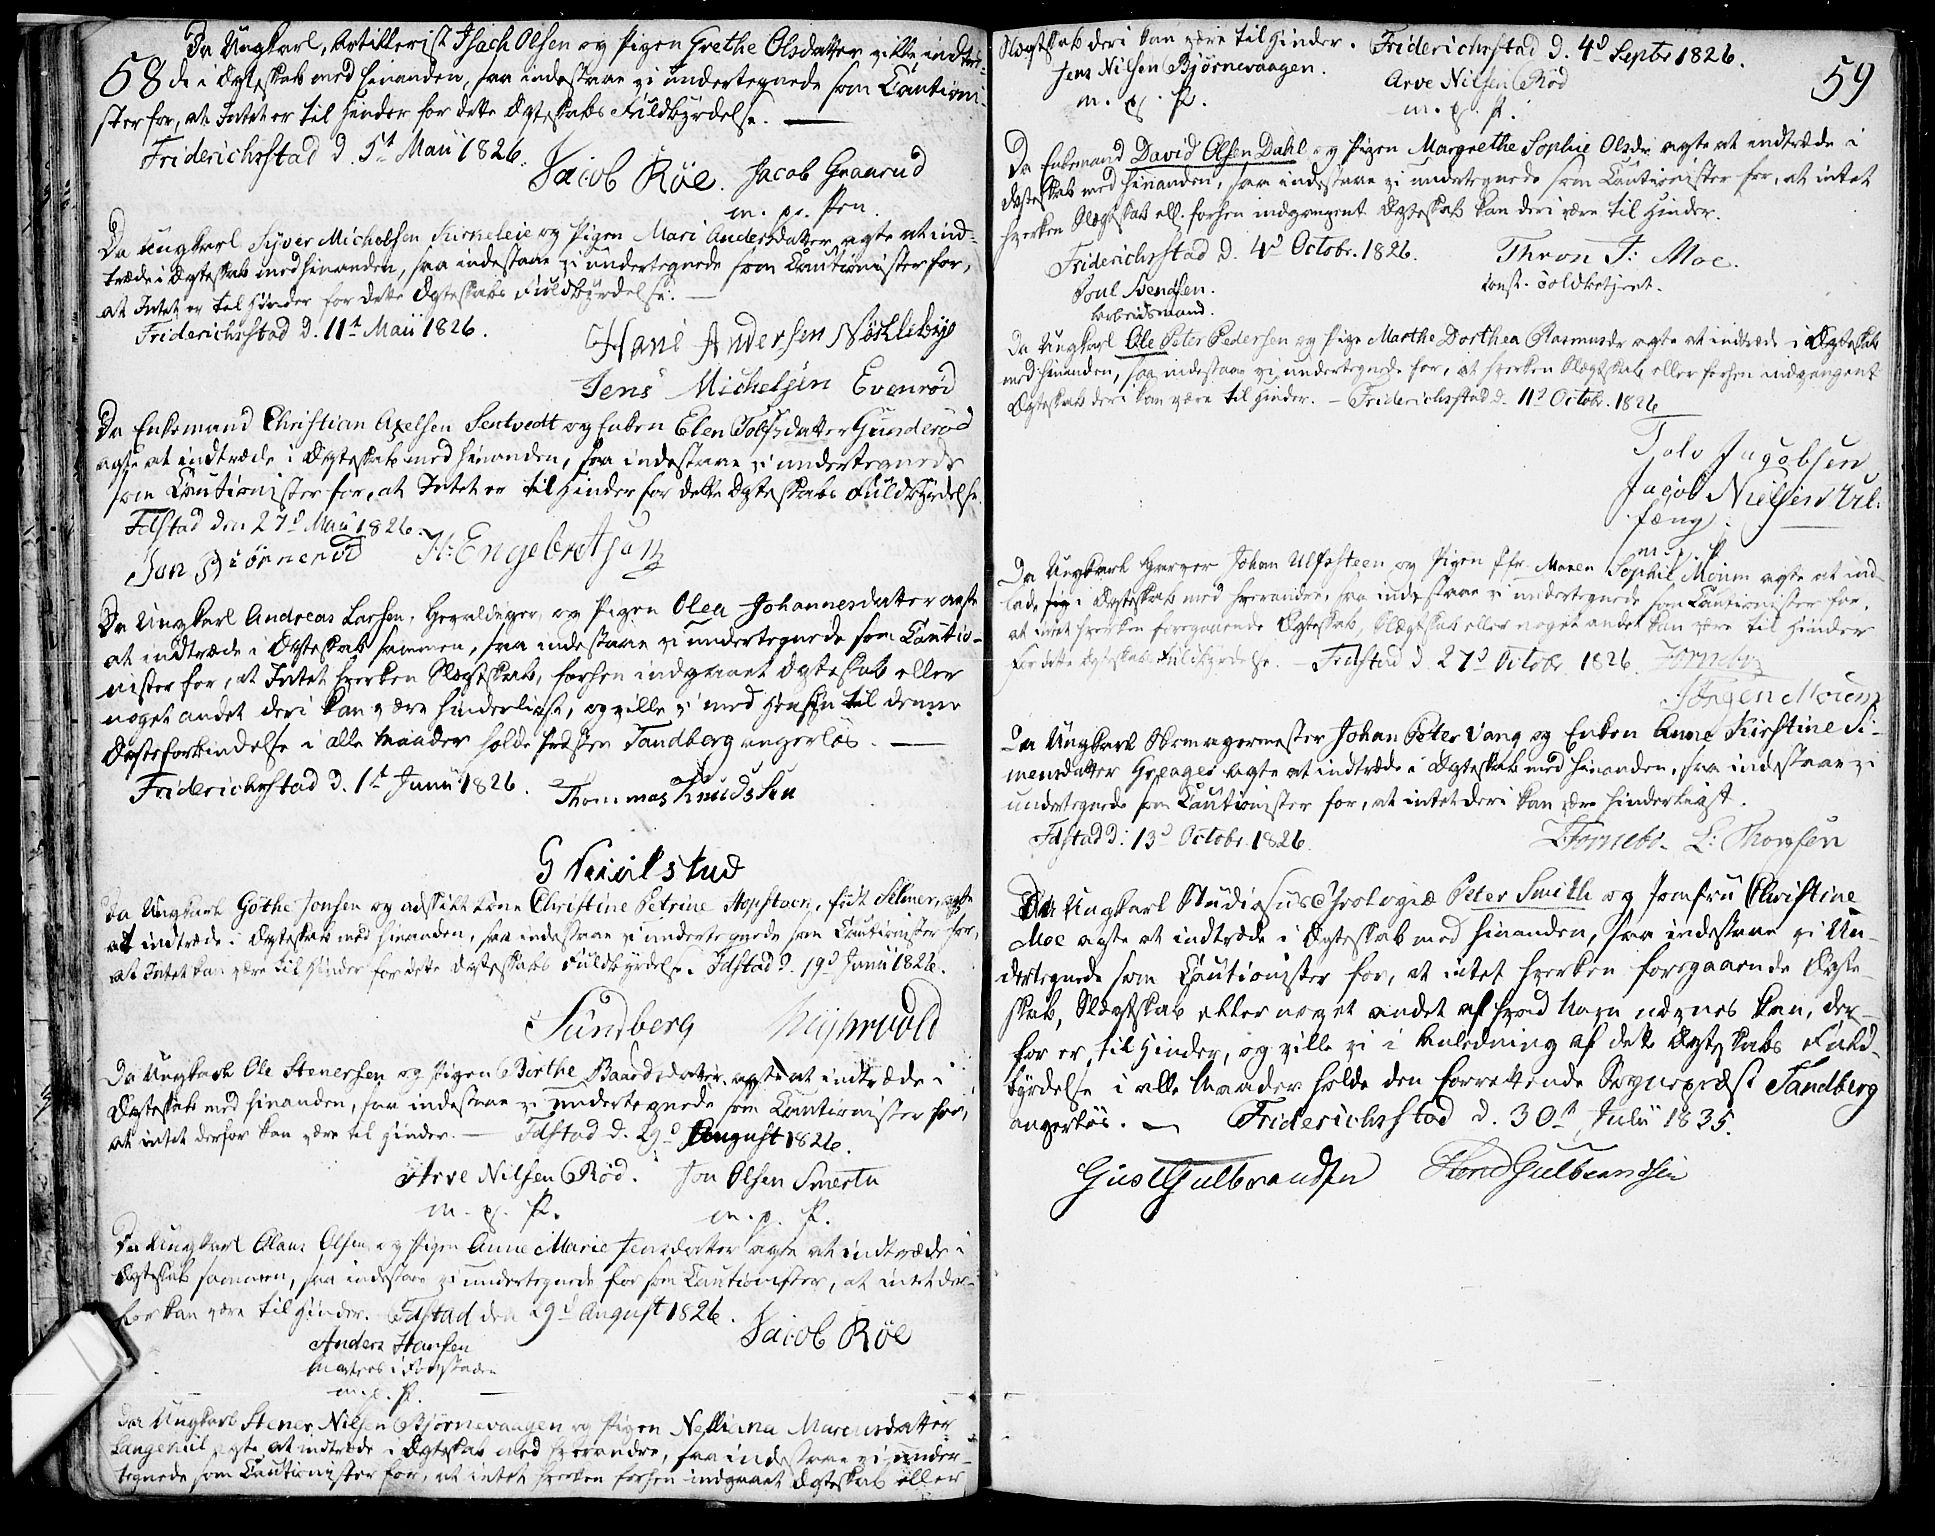 58
Da Ungkarl, Artillerist Isach Olsen og Pigen Grethe Olsdatter ville indtræ-
de i Ægteskab med hinanden, saa indestaae vi undertegnede som Cautioni-
ster for, at Intet er til Hinder for dette Ægteskabs Fuldbyrdelse. —
Friderichstad d. 5t Maii 1826.
Jacob Röe. Jacob Graarud
m. p. Pen.
Da Ungkarl Syver Michelsen Kirneleie og Pigen Mari Andersdatter agte at ind-
træde i Ægteskab med hinanden, saa indestaae vi undertegnede som Cautionister for,
at Intet er til Hinder for dette Ægteskabs Fuldbyrdelse. —
Friderichstad d. 11t Maii 1826.
Hans Andersen Nöklebye
Jens Michelsen Evenrød
Da Enkemand Christian Axelsen Sentvedt og Enken Elen Tolfsdatter Gunderød
agte at indtræde i Ægteskab med hinanden, saa indestaae vi undertegnede
som Cautionister for, at Intet er til Hinder for dette Ægteskabs Fuldbyrdelse.
Fdstad den 27d Maii 1826.
Jan Biørnerød H: Engebretsen
Da Ungkarl Andreas Larsen, Gevaldiger, og Pigen Olea Johannesdatter agte
at indtræde i Ægteskab sammen, saa indestaae vi undertegnede som Cautio-
nister for, at Intet hverken Slægtskab, forhen indgaaet Ægteskab eller
noget andet deri kan være hinderligt, og ville vi med Hensyn til denne
Ægteforbindelse i alle Maader holde Præsten Tandberg angerlös. —
Friderichstad d. 1t Junii 1826. Thommas Knudssen
G
Da Ungkarl Göthe Jonsen og adskilt Kone Christine Petrine Stopsteen, født Selmer, agte
at indtræde i Ægteskab med hinanden, saa indestaae vi undertegnede som Cautionister for,
at Intet kan være til Hinder for dette Ægteskabs Fuldbyrdelse. Fdstad d. 19d Junii 1826.
Sundberg
Da Ungkarl Ole Stenersen og Pigen Birthe Baardsdatter agte at indtræde i
Ægteskab med hinanden, saa indestaae vi undertegnede som Cautionister for,
at intet derfor kan være til Hinder. — Fdstad d. 29d August 1826.
Arve Nilsen Rød. Jon Olsen Smertu
m. p. P. m. p. P.
Da Ungkarl Olaus Olsen og Pigen Anne Marie Jensdatter agte at indtræde i
Ægteskab sammen, saa indestaae vi undertegnede for som Cautionister, at intet der-
for kan være til Hinder. Fdstad den 29d August 1826.
Anders Hansen Jacob Röe
Matros i Forstaden
m. p. P.
Da Ungkarl Stener Nilsen Bjørnevaagen og Pigen Nelliana Marcusdatter
agte at indtræde i Ægteskab med hverandre, saa indestaae vi under-
tegnede som Cautionister for, at intet hverken forhen indgaaet Ægteskab eller
59
Slægtskab deri kan være til Hinder. Friderichstad d. 4d Septr 1826.
Jens Nilsen Bjørnevaagen. Arve Nilsen Rød
m. p. P. m. p. P.
Da Enkemand David Olsen Dahl og Pigen Margrethe Sophie Olsdr agte at indtræde i
Ægteskab med hinanden, saa indestaae vi undertegnede som Cautionister for, at intet
hverken Slægtskab ell. forhen indgangent Ægteskab kan deri være til Hinder.
Friderichstad d. 4d Octobr. 1826. Thron T: Moe.
Poul Svendsen. const. Toldbetjent.
Arbeidsmand.
Da Ungkarl Ole Peter Pedersen og Pige Marthe Dorthea Rasmusdr agte at indtræde i Ægteskab
med hinanden, saa indestaae vi undertegnede for, at hverken Slægtskab eller forhen indgangent
Ægteskab deri kan være til Hinder. — Friderichstad d. 11d Octobr. 1826
Tolv Jacobsen
Jacob Nielsen
m. p. P
Da Ungkarl Garver Johan Ulfsteen og Pigen Jfr. Maren Sophie Moium agte at ind-
lade sig i Ægteskab med hverandre, saa indestaae vi undertegnede som Cautionister for,
at intet hverken foregaaende Ægteskab, Slægtskab eller noget andet kan være til Hinder
for dette Ægteskabs Fuldbyrdelse. — Fredstad d. 27d Octobr 1826. Fornebo
Jörgen Moium
Da Ungkarl Skomagermester Johan Peter Vang og Enken Anne Kirstine Si-
mensdatter agte at indtræde i Ægteskab med hinanden, saa indestaae vi
undertegnede som Cautionister for, at intet deri kan være hinderligt.
Fdstad d: 13d Octobr. 1826. Fornebo. L: Thomsen
Da Ungkarl Studiosus Theologiæ Peter Smith og Jomfru Christine
Moe agte at indtræde i Ægteskab med hinanden, saa indestaae vi Un-
dertegnede som Cautionister for, at intet hverken foregaaende Ægte-
skab, Slægtskab eller noget andet af hvad Navn nævnes kan, der-
for er til Hinder, og ville vi i Anledning af dette Ægteskabs Fuld-
byrdelse i alle Maader holde den forrettende Sognepræst Tandberg
angerlös. — Friderichstad d. 30t Julii 1835.
Gust Gulbrandsen Gulbrandsen